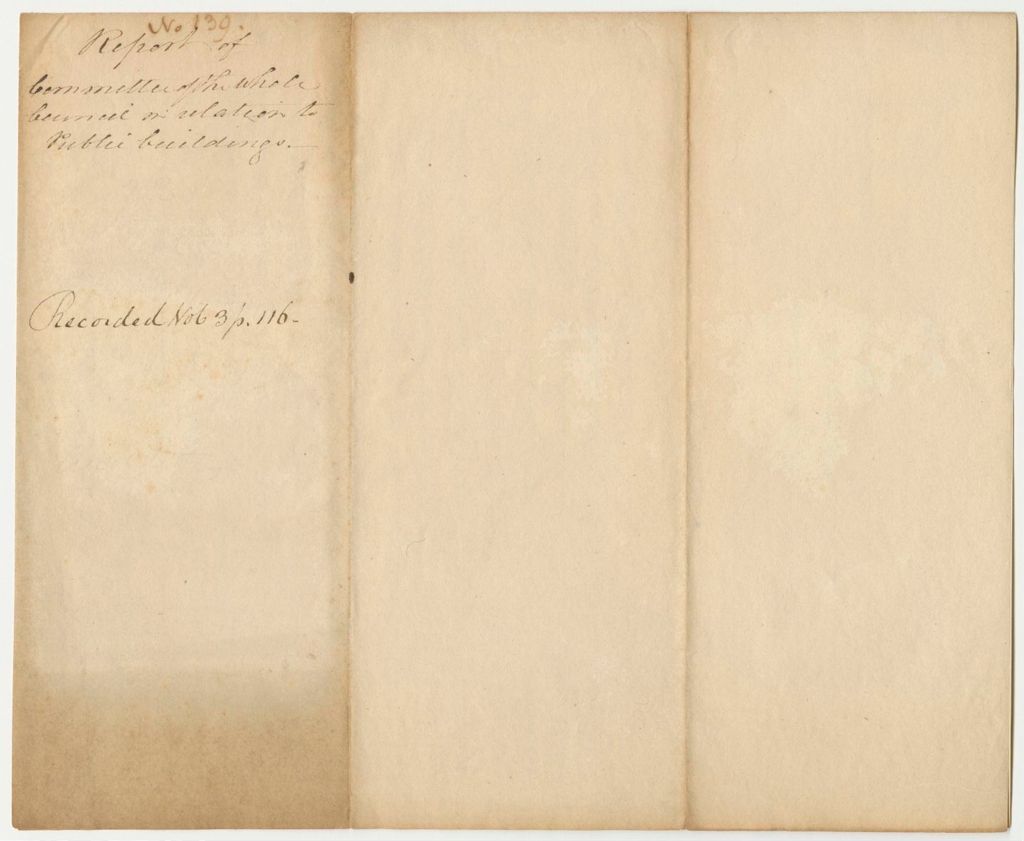 No 139.
Report of
Committee of the whole
Council in relation to
Public buildings.
Recorded Vol 3 p. 116-